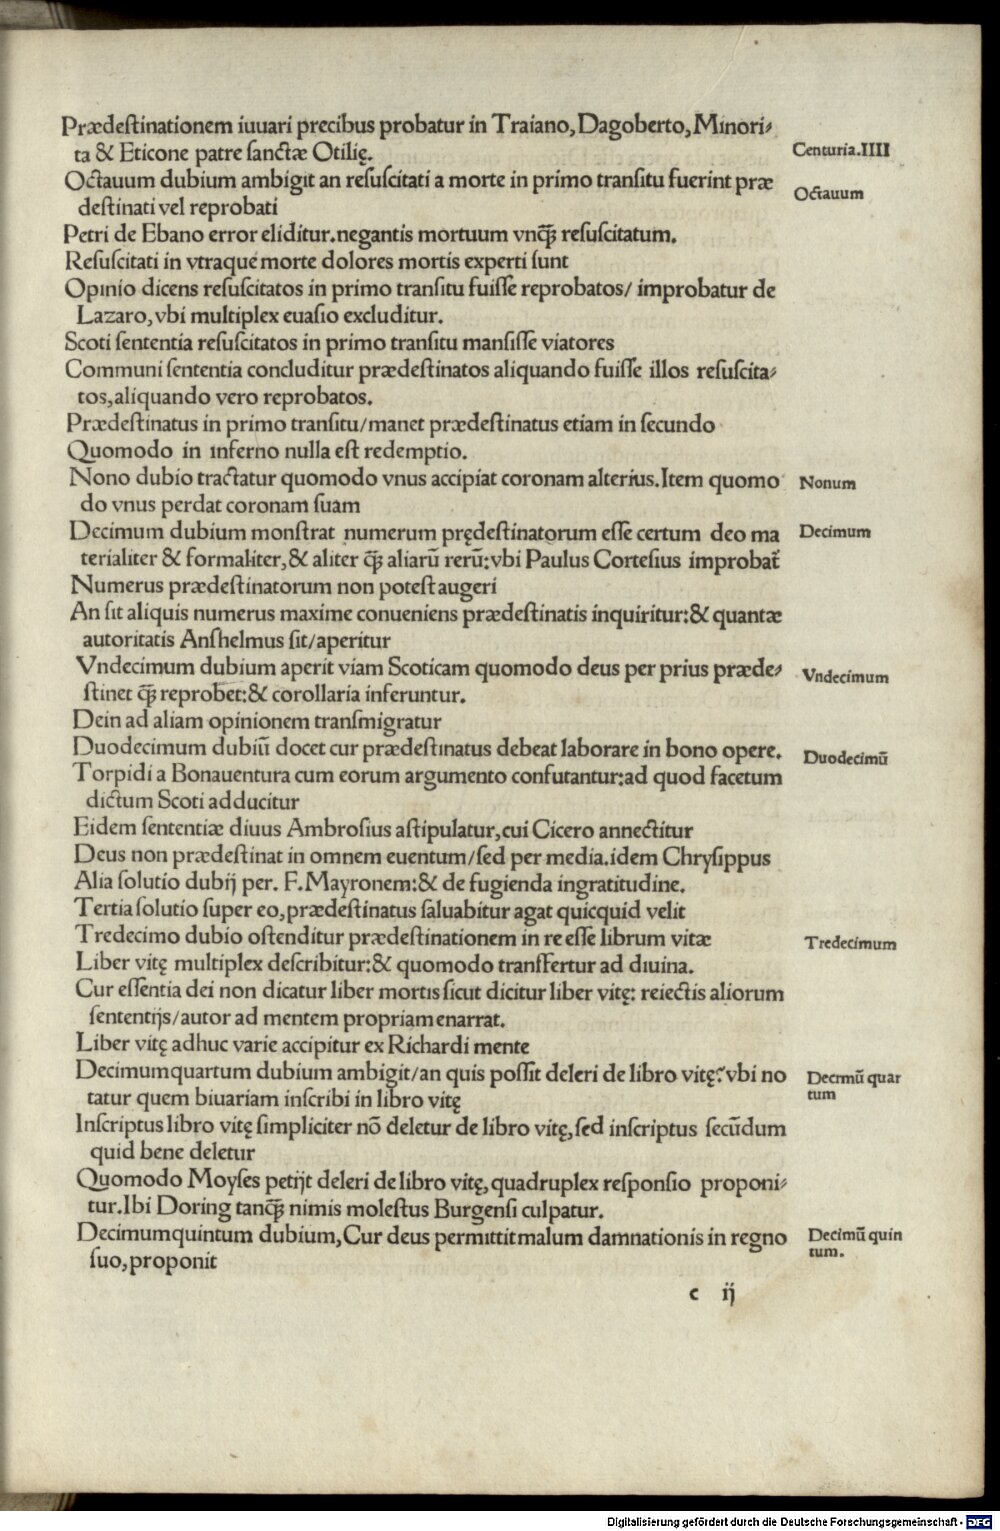 Prædestinationem iuuari precibus probatur in Traiano, Dagoberto, Minori⸗
ta & Eticone patre sanctæ Otilię.
Centuria.IIII
Octauum dubium ambigit an resuscitati a morte in primo transitu fuerint præ
Octauum
destinati vel reprobati
Petri de Ebano error eliditur.negantis mortuum vnq̃ꝫ resuscitatum.
Resuscitati in vtraque morte dolores mortis experti sunt
Opinio dicens resuscitatos in primo transitu fuisse reprobatos/ improbatur de
Lazaro, vbi multiplex euasio excluditur.
Scoti sententia resuscitatos in primo transitu mansisse viatores
Communi sententia concluditur prædestinatos aliquando fuisse illos resuscita⸗
tos, aliquando vero reprobatos.
Prædestinatus in primo transitu/manet prædestinatus etiam in secundo
Quomodo in inferno nulla est redemptio.
Nono dubio tractatur quomodo vnus accipiat coronam alterius.Item quomo
Nonum
do vnus perdat coronam suam
Decimum dubium monstrat numerum prędestinatorum esse certum deo ma
Decimum
terialiter & formaliter, & aliter q̃ꝫ aliarū rerū: vbi Paulus Cortesius improbat̃
Numerus prædestinatorum non potest augeri
An sit aliquis numerus maxime conueniens prædestinatis inquiritur: & quantæ
autoritatis Anshelmus sit/aperitur
Vndecimum dubium aperit viam Scoticam quomodo deus per prius præde⸗
Vndecimum
stinet q̃ꝫ reprobet: & corollaria inferuntur.
Dein ad aliam opinionem transmigratur
Duodecimum dubiū docet cur prædestinatus debeat laborare in bono opere.
Duodecimū
Torpidi a Bonauentura cum eorum argumento confutantur: ad quod facetum
dictum Scoti adducitur
Eidem sententiæ diuus Ambrosius astipulatur, cui Cicero annectitur
Deus non prædestinat in omnem euentum/sed per media.idem Chrysippus
Alia solutio dubij per. F.Mayronem: & de fugienda ingratitudine.
Tertia solutio super eo, prædestinatus saluabitur agat quicquid velit
Tredecimo dubio ostenditur prædestinationem in re esse librum vitæ
Tredecimum
Liber vitę multiplex describitur: & quomodo transfertur ad diuina.
Cur essentia dei non dicatur liber mortis sicut dicitur liber vitę: reiectis aliorum
sententijs/autor ad mentem propriam enarrat.
Liber vitę adhuc varie accipitur ex Richardi mente
Decimumquartum dubium ambigit/an quis possit deleri de libro vitę? vbi no
Decimū quar
tatur quem biuariam inscribi in libro vitę
tum
Inscriptus libro vitę simpliciter nō deletur de libro vitę, sed inscriptus secūdum
quid bene deletur
Quomodo Moyses petijt deleri de libro vitę, quadruplex responsio proponi⸗
tur.Ibi Doring tanq̃ꝫ nimis molestus Burgensi culpatur.
Decimumquintum dubium, Cur deus permittit malum damnationis in regno
Decimū quin
suo, proponit
tum.
c ij
Digitalisierung gefördert durch die Deutsche Forschungsgemeinschaft - DFG